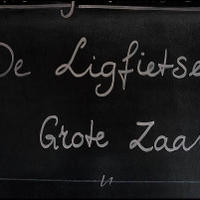 De Ligfietse
Grote Zaa